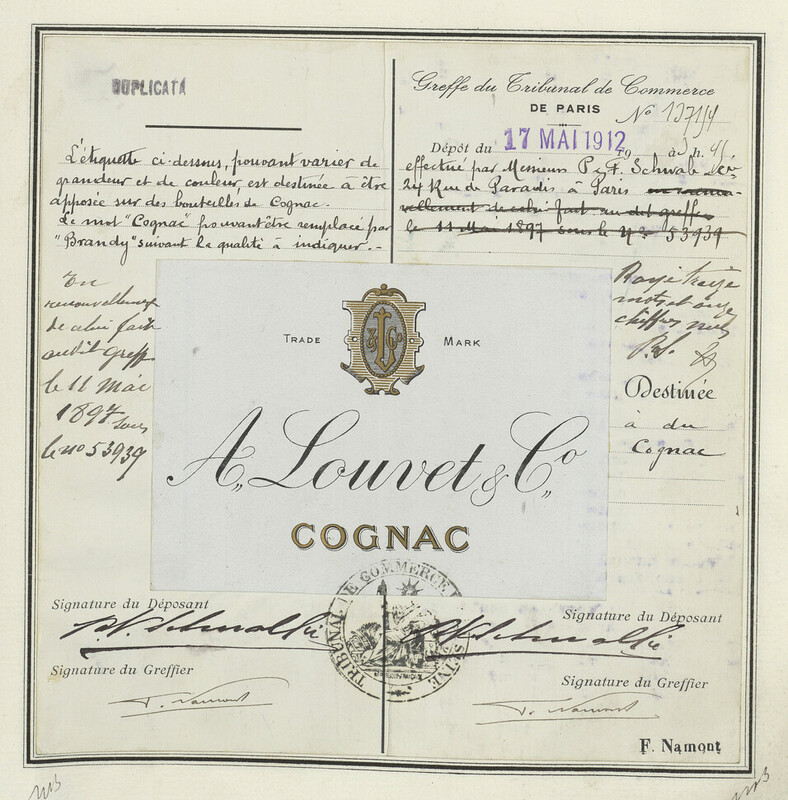 DUPLICATA
L'étiquette ci-dessous, pouvant varier de
grandeur et de couleur, est destinée à être
apposée sur des bouteilles de Cognac.
Le mot "Cognac" pouvant être remplacé par
"Brandy" suivant la qualité à indiquer.-
En
renouvellement
de celui fait
audit greffe
le 11 Mai
1897 sous
le no 53939
Greffe du Tribunal de Commerce
DE PARIS
No
Dépôt du 17 MAI 1912 19 à 3 h. 45
effectué par Messieurs P & F. Schwab & Cie
24 Rue de Paradis à Paris en renou-
vellement de celui fait au dit greffe
le 11 Mai 1897 sous le No 53939
Rayé treize
mots et onze
chiffres nuls
Destinée
à du
Cognac
TRADE MARK
& Co
A. Louvet & Co
COGNAC
TRIBUNAL DE COMMERCE SEINE
Signature du Déposant
Signature du Greffier
Signature du Déposant
Signature du Greffier
F. Namont